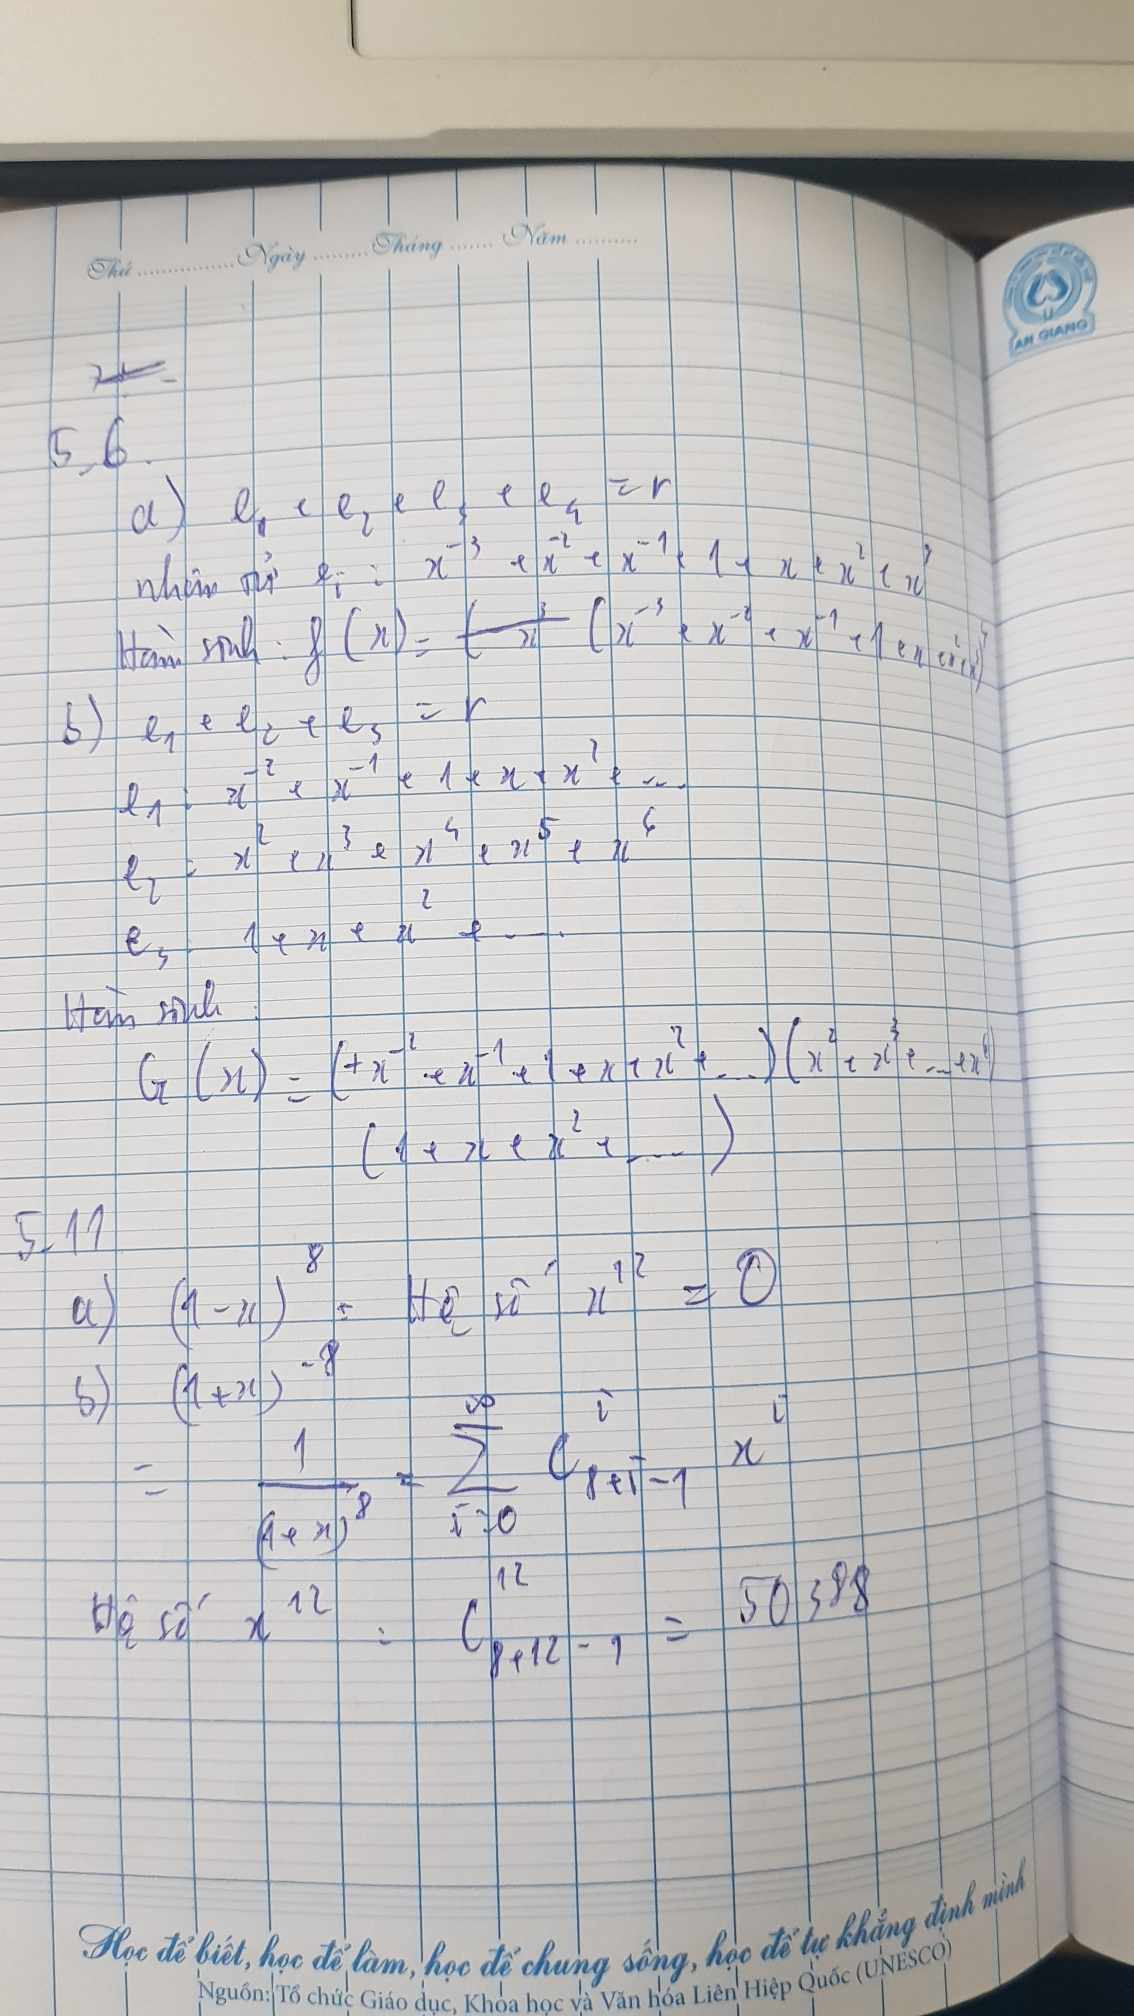 Thứ ................ Ngày ......... Tháng ....... Năm ..........
AN GIANG
5.6.
a) e₁ + e₂ + e₃ + e₄ = r
nhân tử eᵢ : x⁻³ + x⁻² + x⁻¹ + 1 + x + x² + x³
Hàm sinh : g(x) = (x⁻³ + x⁻² + x⁻¹ + 1 + x + x² + x³)⁴
b) e₁ + e₂ + e₃ = r
e₁ : x⁻² + x⁻¹ + 1 + x + x² + ....
e₂ : x² + x³ + x⁴ + x⁵ + x⁶
e₃ : 1 + x + x² + ....
Hàm sinh :
G(x) = (+x⁻² + x⁻¹ + 1 + x + x² + ...)(x² + x³ + ... + x⁶)
(1 + x + x² + ....)
5.11
a) (1-x)⁸ : Hệ số x¹² = 0
b) (1+x)⁻⁸
= 1/(1+x)⁸ = ∑_{i=0}^{∞} C_{8+i-1}^{i} x^{i}
Hệ số x¹² : C_{8+12-1}^{12} = 50388
Học để biết, học để làm, học để chung sống, học để tự khẳng định mình
Nguồn: Tổ chức Giáo dục, Khoa học và Văn hóa Liên Hiệp Quốc (UNESCO)